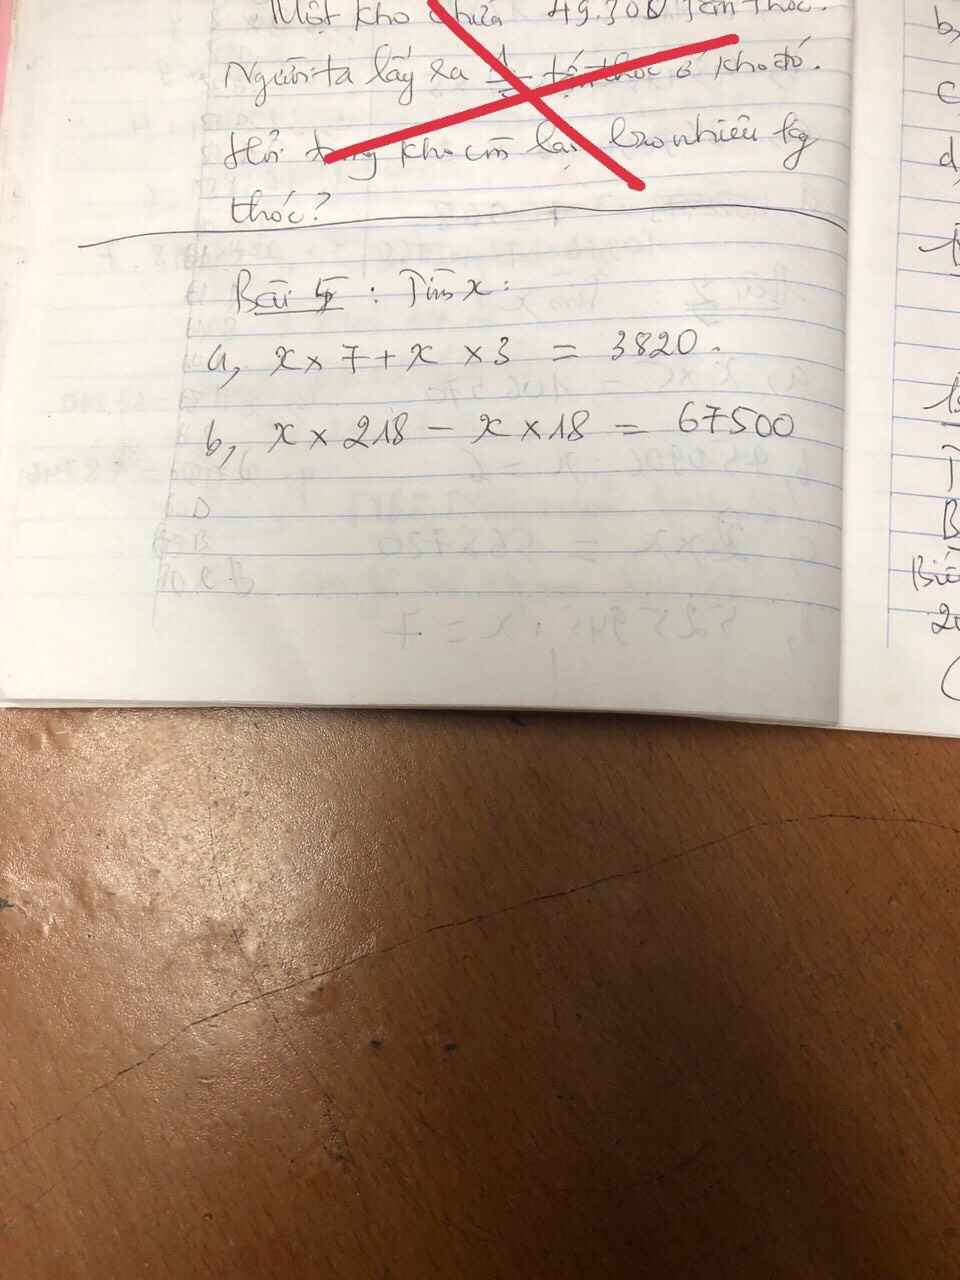 Một kho chứa 49.300 tấn thóc.
Người ta lấy ra tấn thóc ở kho đó.
Hỏi trong kho còn lại bao nhiêu kg
thóc?
Bài 4 : Tìm x :
a, x × 7 + x × 3 = 3820.
b, x × 218 - x × 18 = 67500
b,
c
d,
B
Biế
20